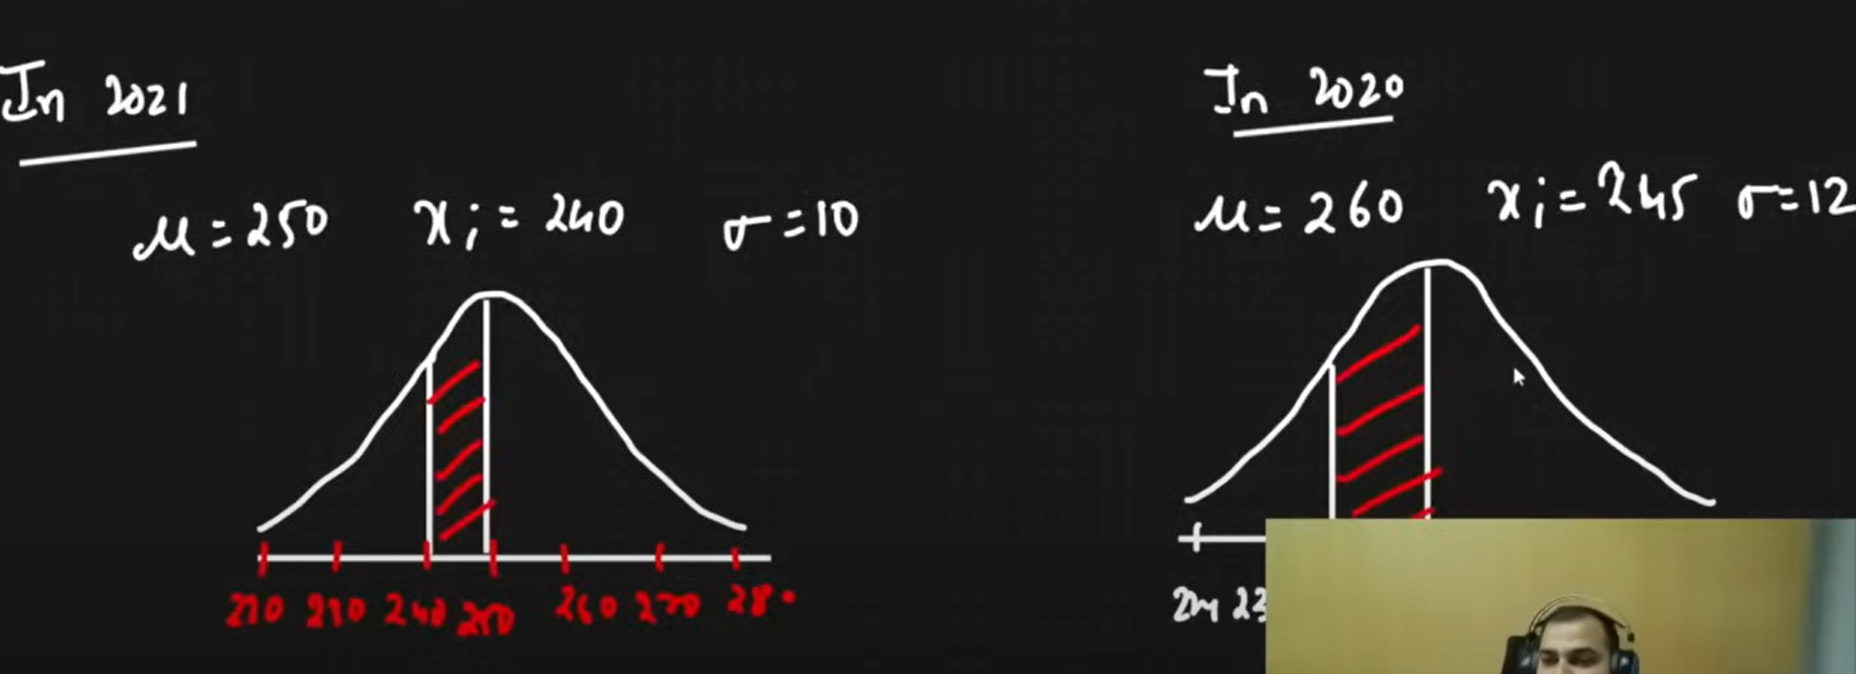 In 2021
μ = 250 xi = 240 σ = 10
240 250 260 270 28
In 2020
μ = 260 xi = 245 σ = 12